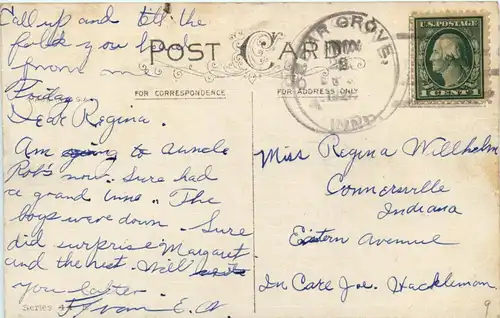 Call up and tell the
folks you had
from m
Friday.
POST CARD
FOR CORRESPONDENCE
FOR ADDRESS ONLY
CEDAR GROVE
NOV
8
IND.
U.S. POSTAGE
1 CENT 1
Dear Regina.
Am going to auncle
Rob's now. Sure had
a grand time. The
boys were down. Sure
did surprise Margaret
and the rest. Will write
you latter.
From E. W
Series 4
Miss Regina Willhelm
Connersville
Indiana
Eastern Avenue
In Care Joe. Hackleman
9